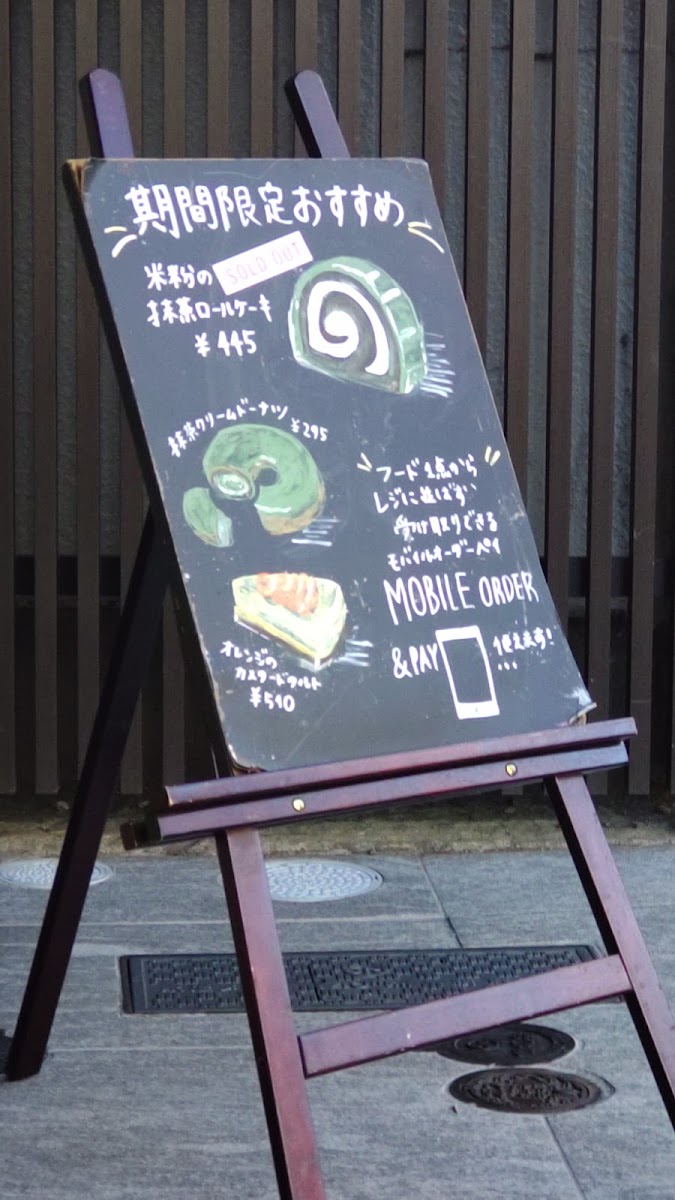 期間限定おすすめ
米粉の SOLD OUT
抹茶ロールケーキ
¥445
抹茶クリームドーナツ ¥295
フード1点から
レジに並ばずに
受け取りできる
モバイルオーダーペイ
MOBILE ORDER
&PAY 使えます!
オレンジの
カスタードタルト
¥510